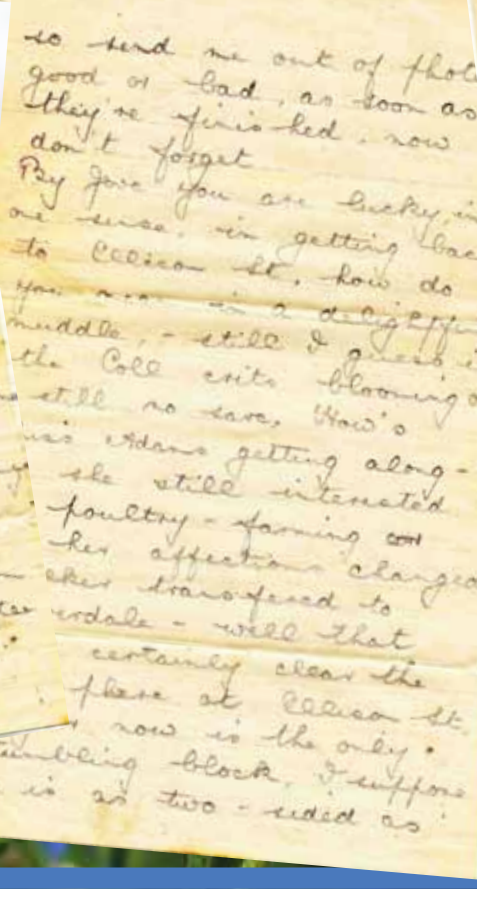 so send me out of phot
good or bad, as soon as
they're finished. now
don't forget
By Jove you are lucky, in
one sense, in getting bac
to Ellison St. how do
you in a delightfu
muddle, - still I guess i
the Coll crits blooming
still no save, How's
Adams getting along -
she still interested
poultry - farming
her affections changed
transfered to
erdale - well that
certainly clear the
phere at Ellison St.
now is the only.
umbling block, I suppose
is as two - sided as